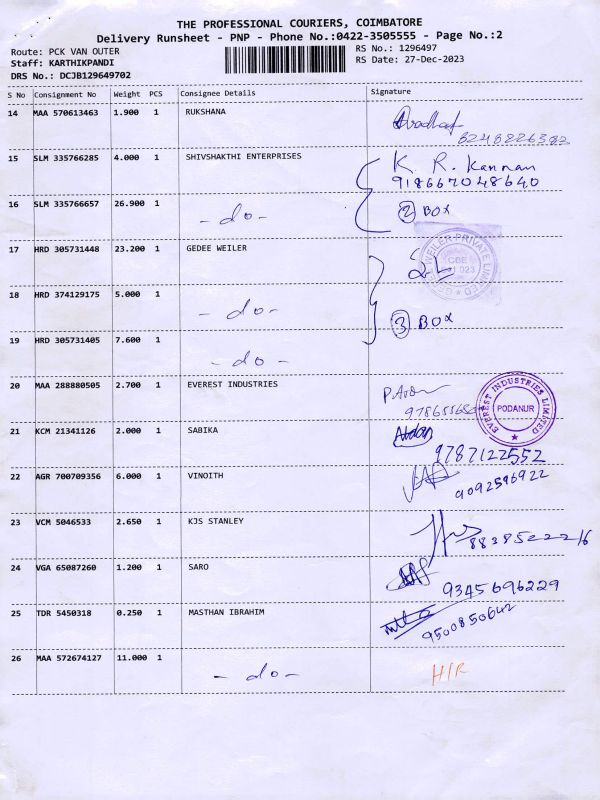 THE PROFESSIONAL COURIERS, COIMBATORE
Delivery Runsheet - PNP - Phone No.:0422-3505555 - Page No.:2
Route: PCK VAN OUTER
RS No.: 1296497
Staff: KARTHIKPANDI
RS Date: 27-Dec-2023
DRS No.: DCJB129649702
S No Consignment No Weight PCS Consignee Details Signature
14 MAA 570613463 1.900 1 RUKSHANA
8248226382
15 SLM 335766285 4.000 1 SHIVSHAKTHI ENTERPRISES K. R. Kannan
918667048640
16 SLM 335766657 26.900 1 - do - 2 BOX
17 HRD 305731448 23.200 1 GEDEE WEILER
WEILER PRIVATE LIMITED
CBE
18 HRD 374129175 5.000 1 - do - 3 BOX
19 HRD 305731405 7.600 1 - do -
20 MAA 288880505 2.700 1 EVEREST INDUSTRIES
EVEREST INDUSTRIES LIMITED
PODANUR
21 KCM 21341126 2.000 1 SABIKA
9787122552
22 AGR 700709356 6.000 1 VINOITH
9092596922
23 VCM 5046533 2.650 1 KJS STANLEY
8838522216
24 VGA 65087260 1.200 1 SARO
9345696229
25 TDR 5450318 0.250 1 MASTHAN IBRAHIM
9500850642
26 MAA 572674127 11.000 1 - do - H/R